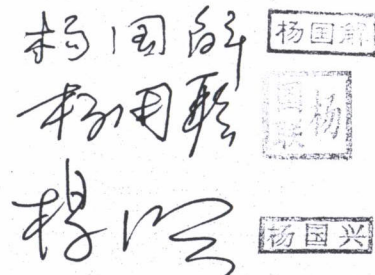 杨国解 杨国解
杨国联 杨国联
杨兴 杨国兴